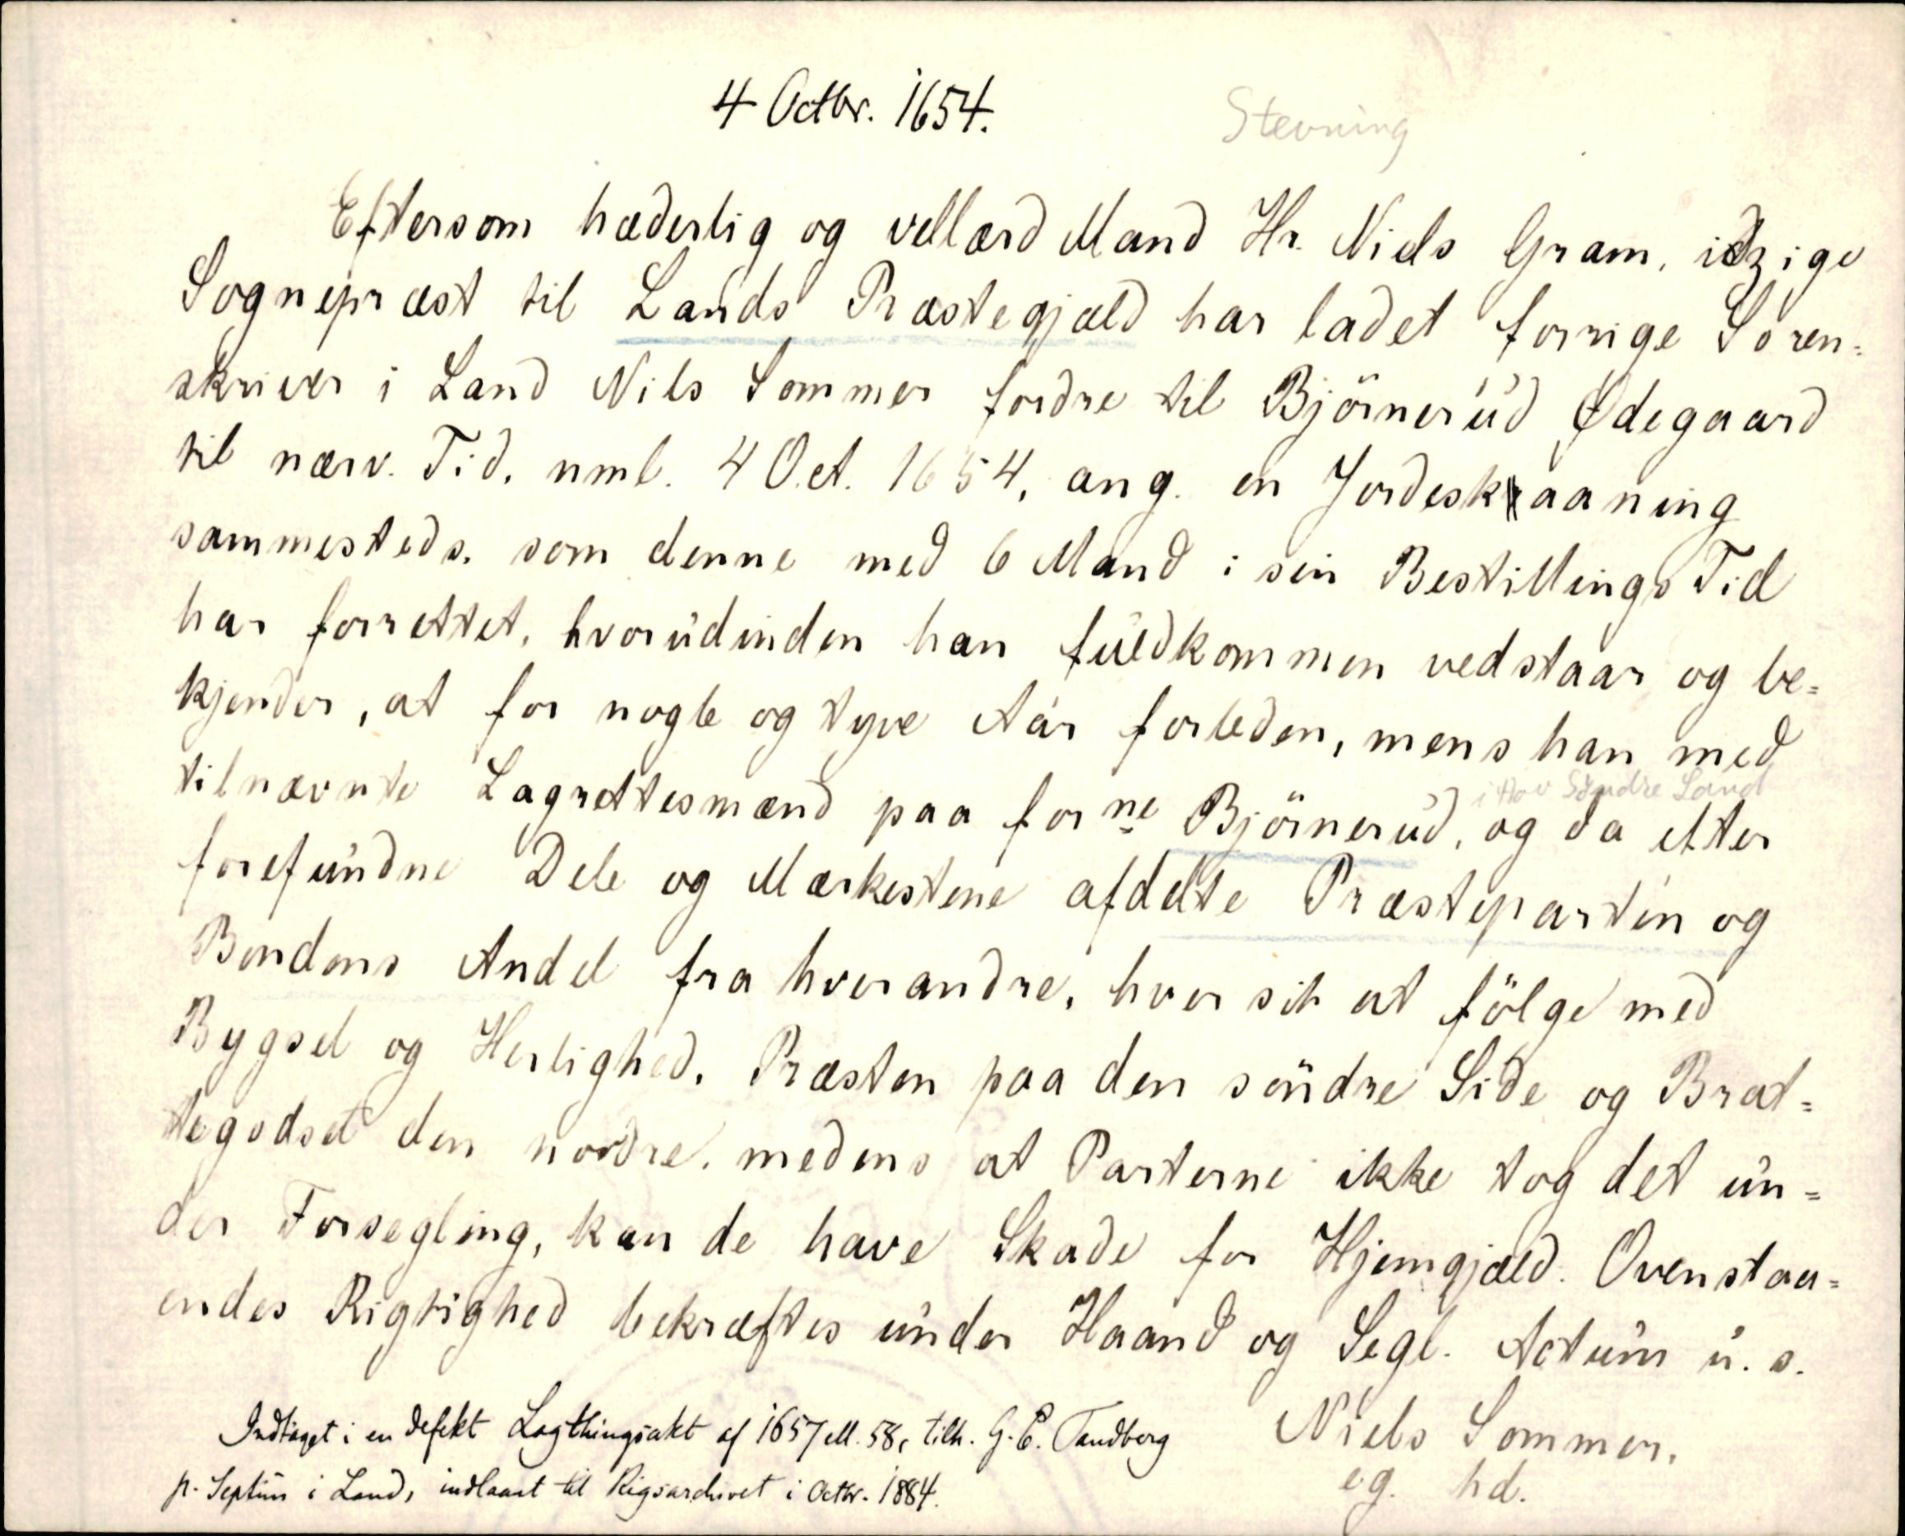 4 Octbr. 1654.
Stevning
Eftersom hæderlig og vellærd Mand Hr. Niels Gram, idzige
Sognepræst til Lands Præstegjæld har ladet forrige Soren-
skriver i Land Nils Sommer fordre til Björnerud Ødegaard
til nærv. Tid, nml. 4 Oct. 1654, ang. en Jordeskaaning
sammesteds, som denne med 6 Mand i sin Bestillings Tid
har forrettet, hvorudinden han fuldkommen vedstaar og be-
kjender, at for nogle og tyve Aar forleden, mens han med
tilnævnte Lagrettesmænd paa forne Björnerud, og da efter
i Hov Søndre Land
forefundne Dele og Mærkestene afdelte Præstepartin og
Bondens Andel fra hverandre, hver sit at fölge med
Bygsel og Herlighed, Præsten paa den söndre Side og Brat-
tegodset den nordre, medens at Parterne ikke tog det un-
der Forsegling, kan de have Skade for Hjemgjæld. Ovenstaa-
endes Rigtighed bekræftes under Haand og Segl. Actum u. s.
Niels Sommer,
eg. hd.
Indtaget i en defekt Lagthingsakt af 1657 ell. 58, tilh. G. E. Tandberg
p. Septun i Land, indlaant til Rigsarchivet i Octbr. 1884.